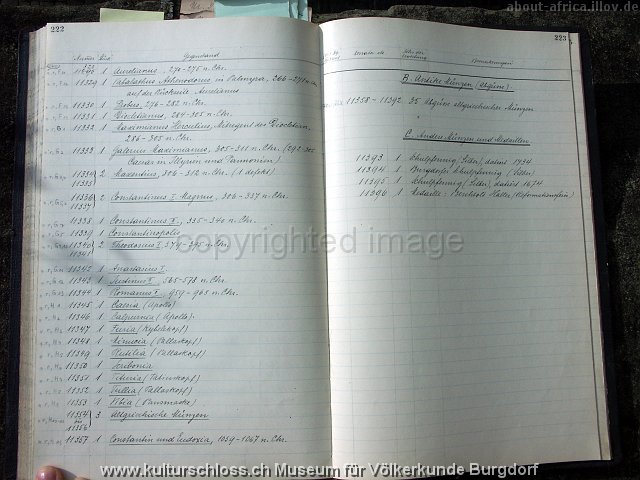 about-africa.illov.de
222
Gegenstand
1 Aurelianus, 270-275 n. Chr.
11329 1 Vabalathus Athenodorus in Palmyra, 266-271 n. Chr.
auf der Rückseite Aurelianus
11330 1 Probus, 276-282 n. Chr.
11331 1 Diocletianus, 284-305 n. Chr.
11332 1 Maximianus Herculius, Mitregent des Diocletian,
286-305 n. Chr.
11333 1 Galerius Maximianus, 305-311 n. Chr. (292-305
Caesar in Illyrien und Pannonien)
11334 2 Maxentius, 306-312 n. Chr. (1 defekt)
11335
11336 2 Constantinus I Magnus, 306-337 n. Chr.
11337
11338 1 Constantinus II, 335-340 n. Chr.
11339 1 Constantinopolis
11340 2 Theodosius I, 379-395 n. Chr.
11341
11342 1 Anastasius I.
11343 1 Justinus II, 565-578 n. Chr.
11344 1 Romanus II, 959-963 n. Chr.
11345 1 (Apollo)
11346 1 Calpurnia (Apollo)
11347 1 Furia (Kybelekopf)
11348 1 Minucia (Pallaskopf)
11349 1 Rutilia (Pallaskopf)
11350 1
11351 1 Tituria (Tatiuskopf)
11352 1 Tullia (Pallaskopf)
11353 1 Vibia (Pansmaske)
11354 3 Altgriechische Münzen
bis
11356
11357 1 Constantin und Eudoxia, 1059-1067 n. Chr.
223
Bemerkungen
B. Antike Münzen (Abgüsse)
11358-11392 35 Abgüsse altgriechischer Münzen
C. Andere Münzen und Medaillen
11393 1 Schulpfennig, Silber, datiert 1734
11394 1 Burgdorfer Schulpfennig (Silber)
11395 1 Schulpfennig, Silber, datiert 1674
11396 1 Medaille: Berchtold Haller (Reformationsfeier)
copyrighted image
www.kulturschloss.ch Museum für Völkerkunde Burgdorf